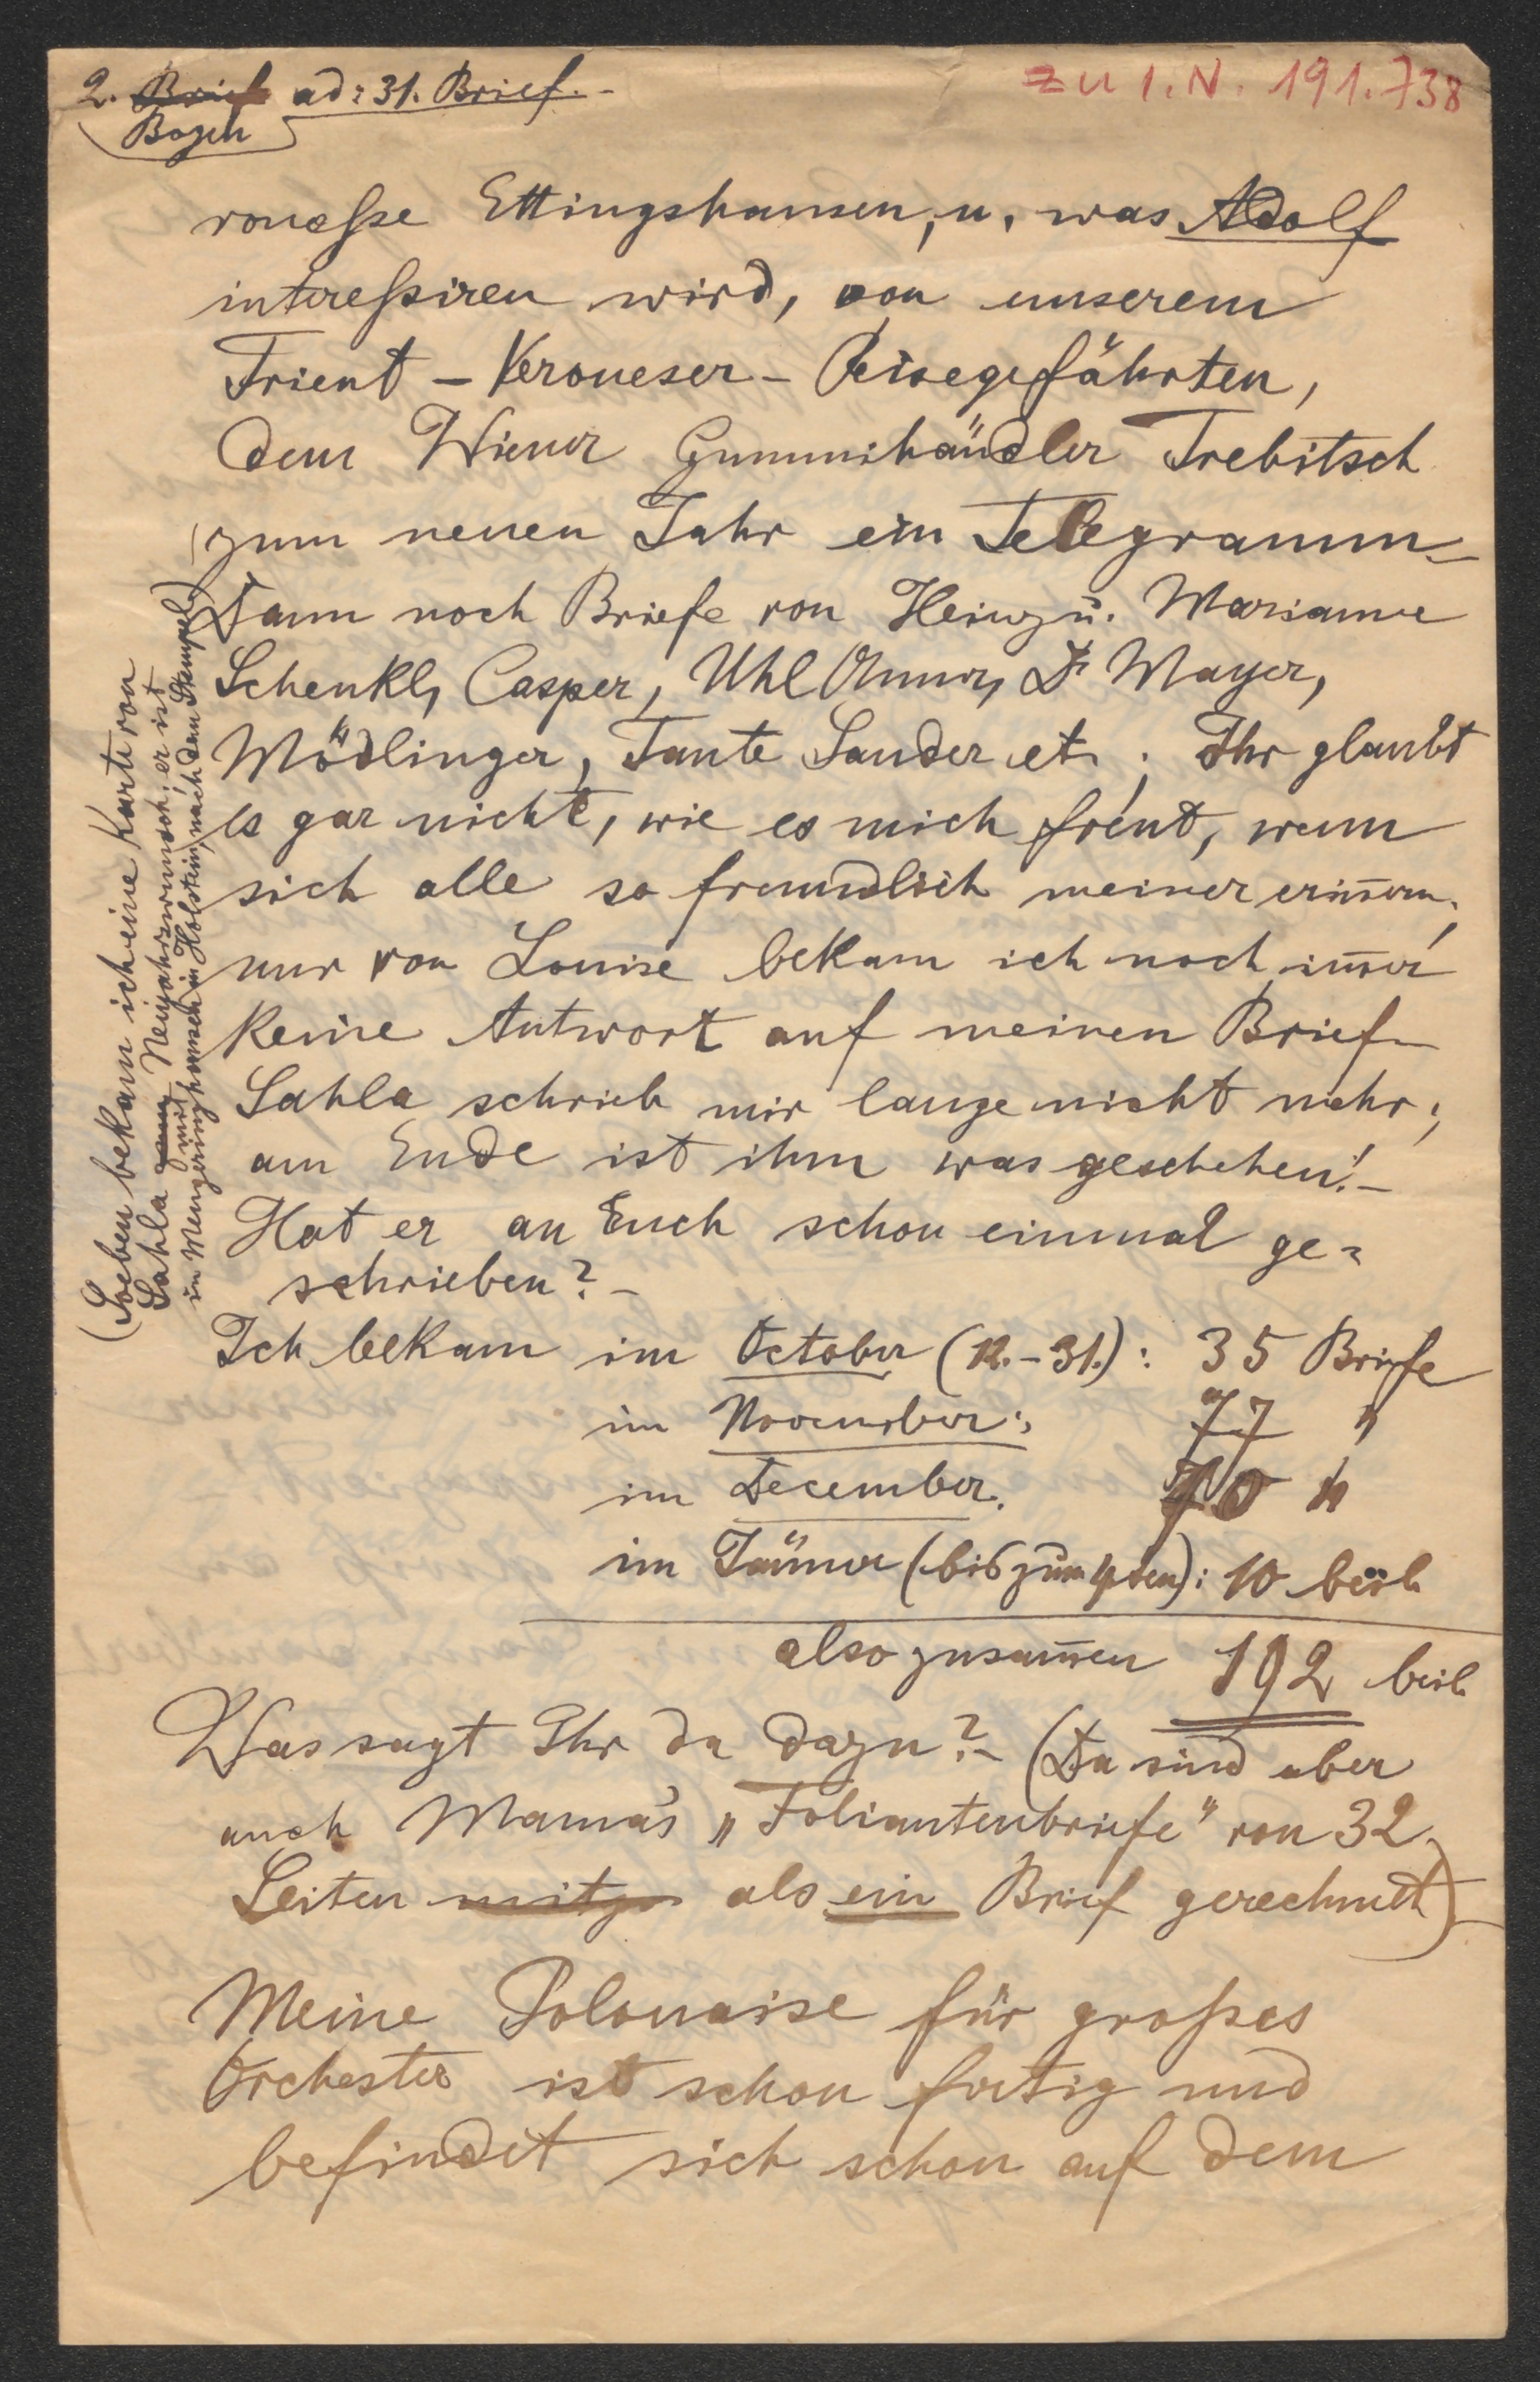 2. Brief ad: 31. Brief.-
Bogen
zu I.N. 191.738
ronesse Ettingshausen, u. was Adolf
interessiren wird, von unserem
Trient - Veroneser - Reisegefährten,
dem Wiener Gummihändler Trebitsch
zum neuen Jahr ein Telegramm -
Dann noch Briefe von Heinz u. Marianne
Schenkl, Casper, Uhl Dr Mayer,
Mödlinger, Tante Sander etc. ; Ihr glaubt
es gar nicht, wie es mich freut, wenn
sich alle so freundlich meiner erin̄ern;
nur von Louise bekam ich noch im̄er
keine Antwort auf meinen Brief -
Sahla schrieb mir lange nicht mehr;
am Ende ist ihm was geschehen! -
Hat er an Euch schon einmal ge=
schrieben? -
(Soeben bekam ich eine Karte von
Sahla zum mit Neujahrswunsch; er ist
in Mengeringhausen in Holstein, nach dem Stempel.)
Ich bekam im October (12.-31.): 35 Briefe
im November: 77 "
im December. 70 "
im Jänner (bis zum 4ten): 10 beil.
also zusam̄en 192 beil.
Was sagt Ihr da dazu? - (Da sind aber
auch Mama's „Foliantenbriefe" von 32
Seiten mitge als ein Brief gerechnet) -
Meine Polonaise für großes
Orchester ist schon fertig und
befindet sich schon auf dem